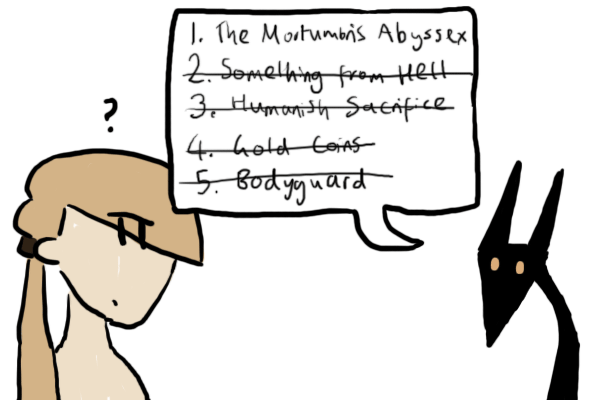 ?
1. The Mortumbris Abyssex
2. Something from Hell
3. Humanish Sacrifice
4. Gold Coins
5. Bodyguard